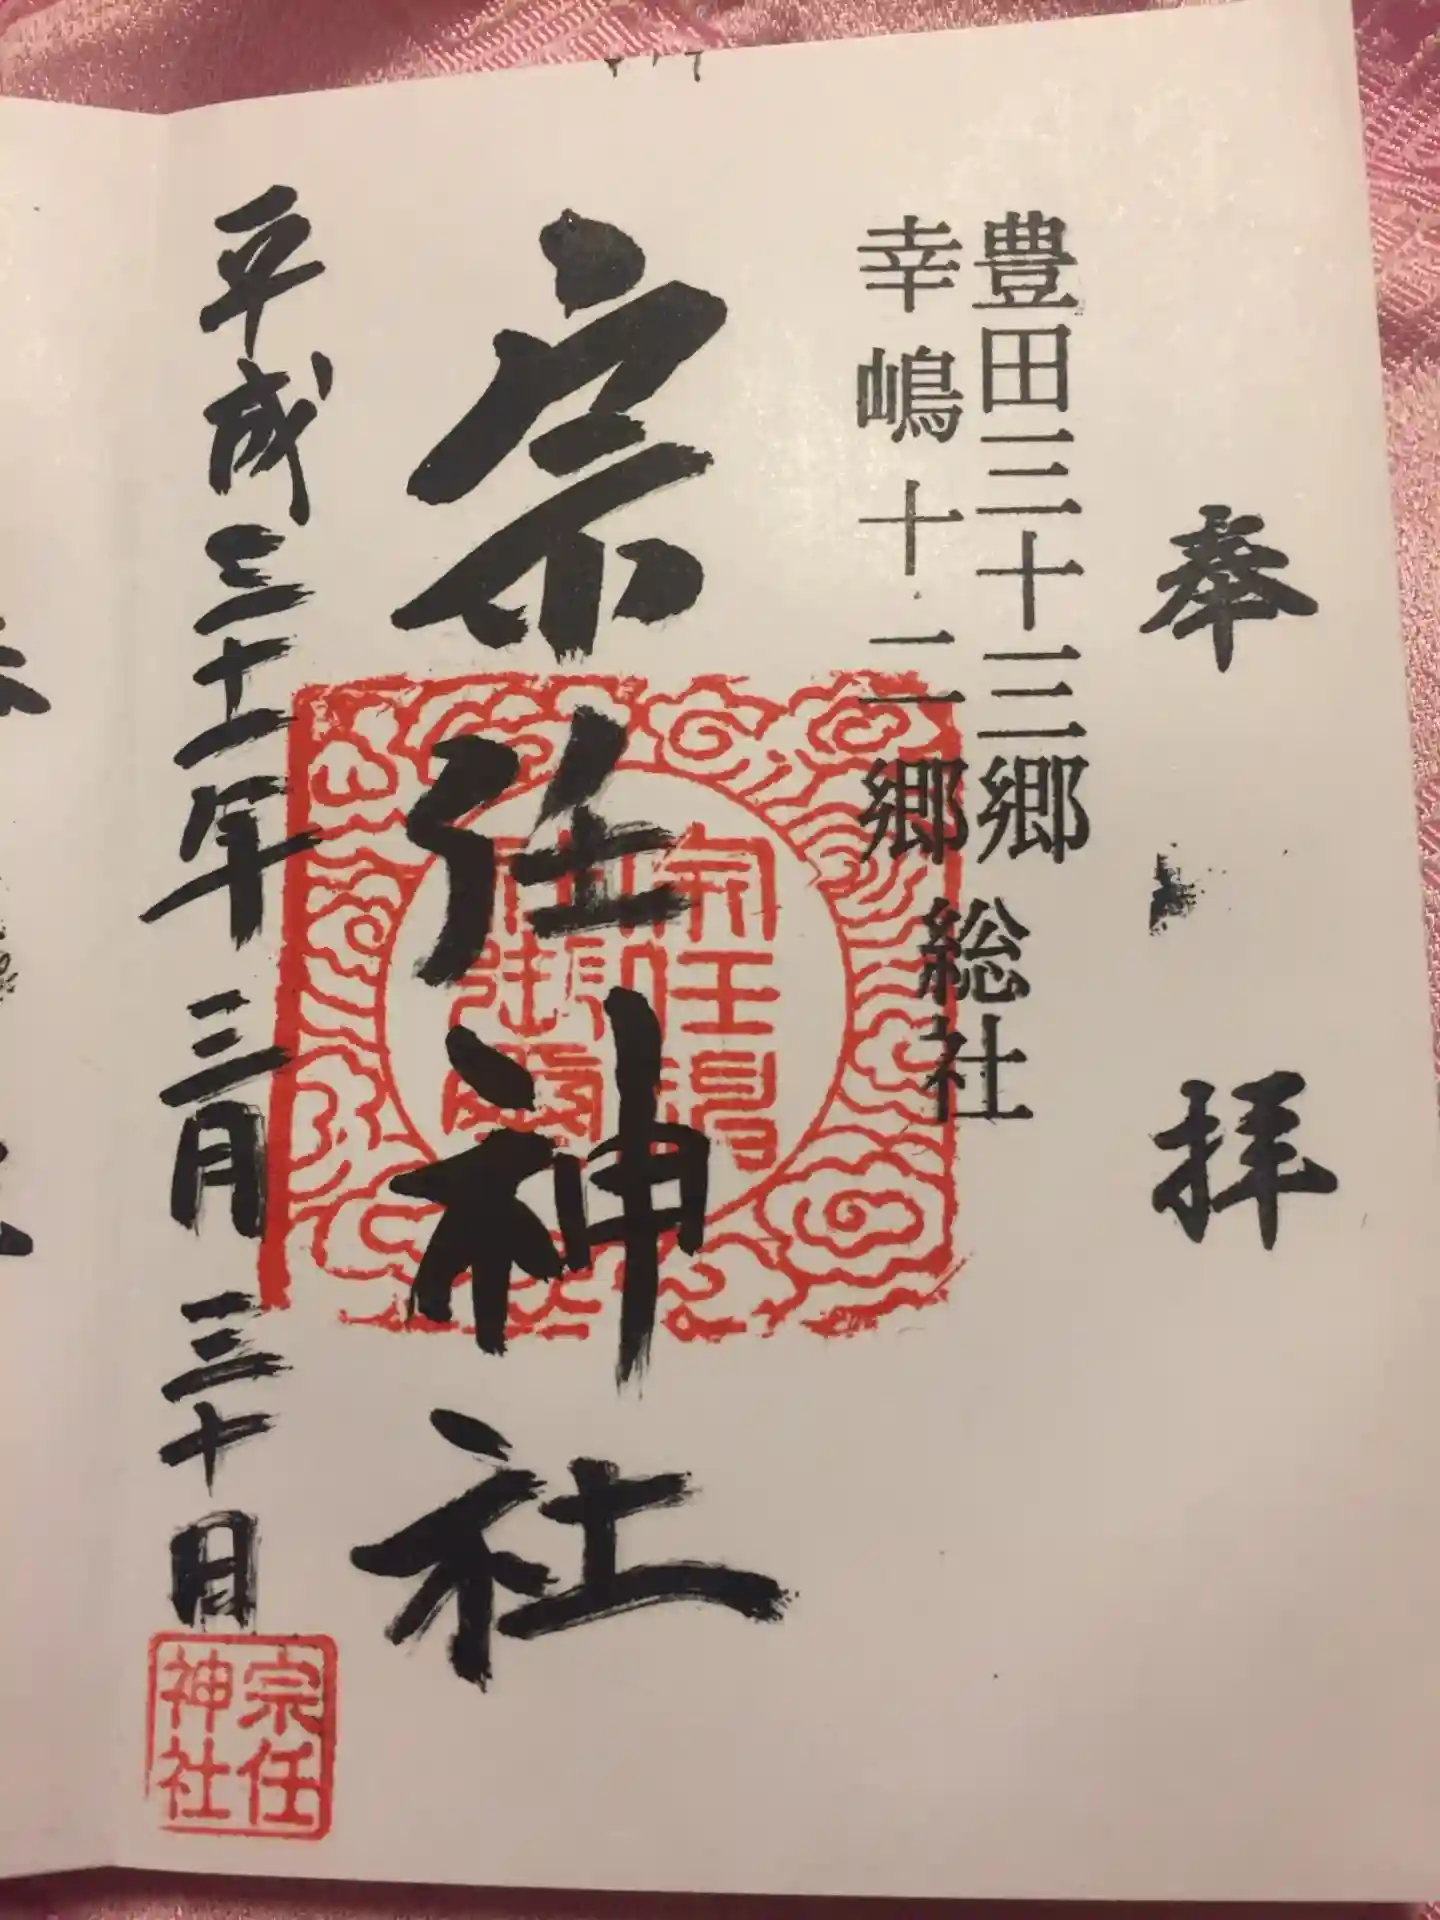 奉拝
豊田三十三郷
幸嶋十二郷
総社
宗任神社
平成三十一年三月三十日
宗任
神社